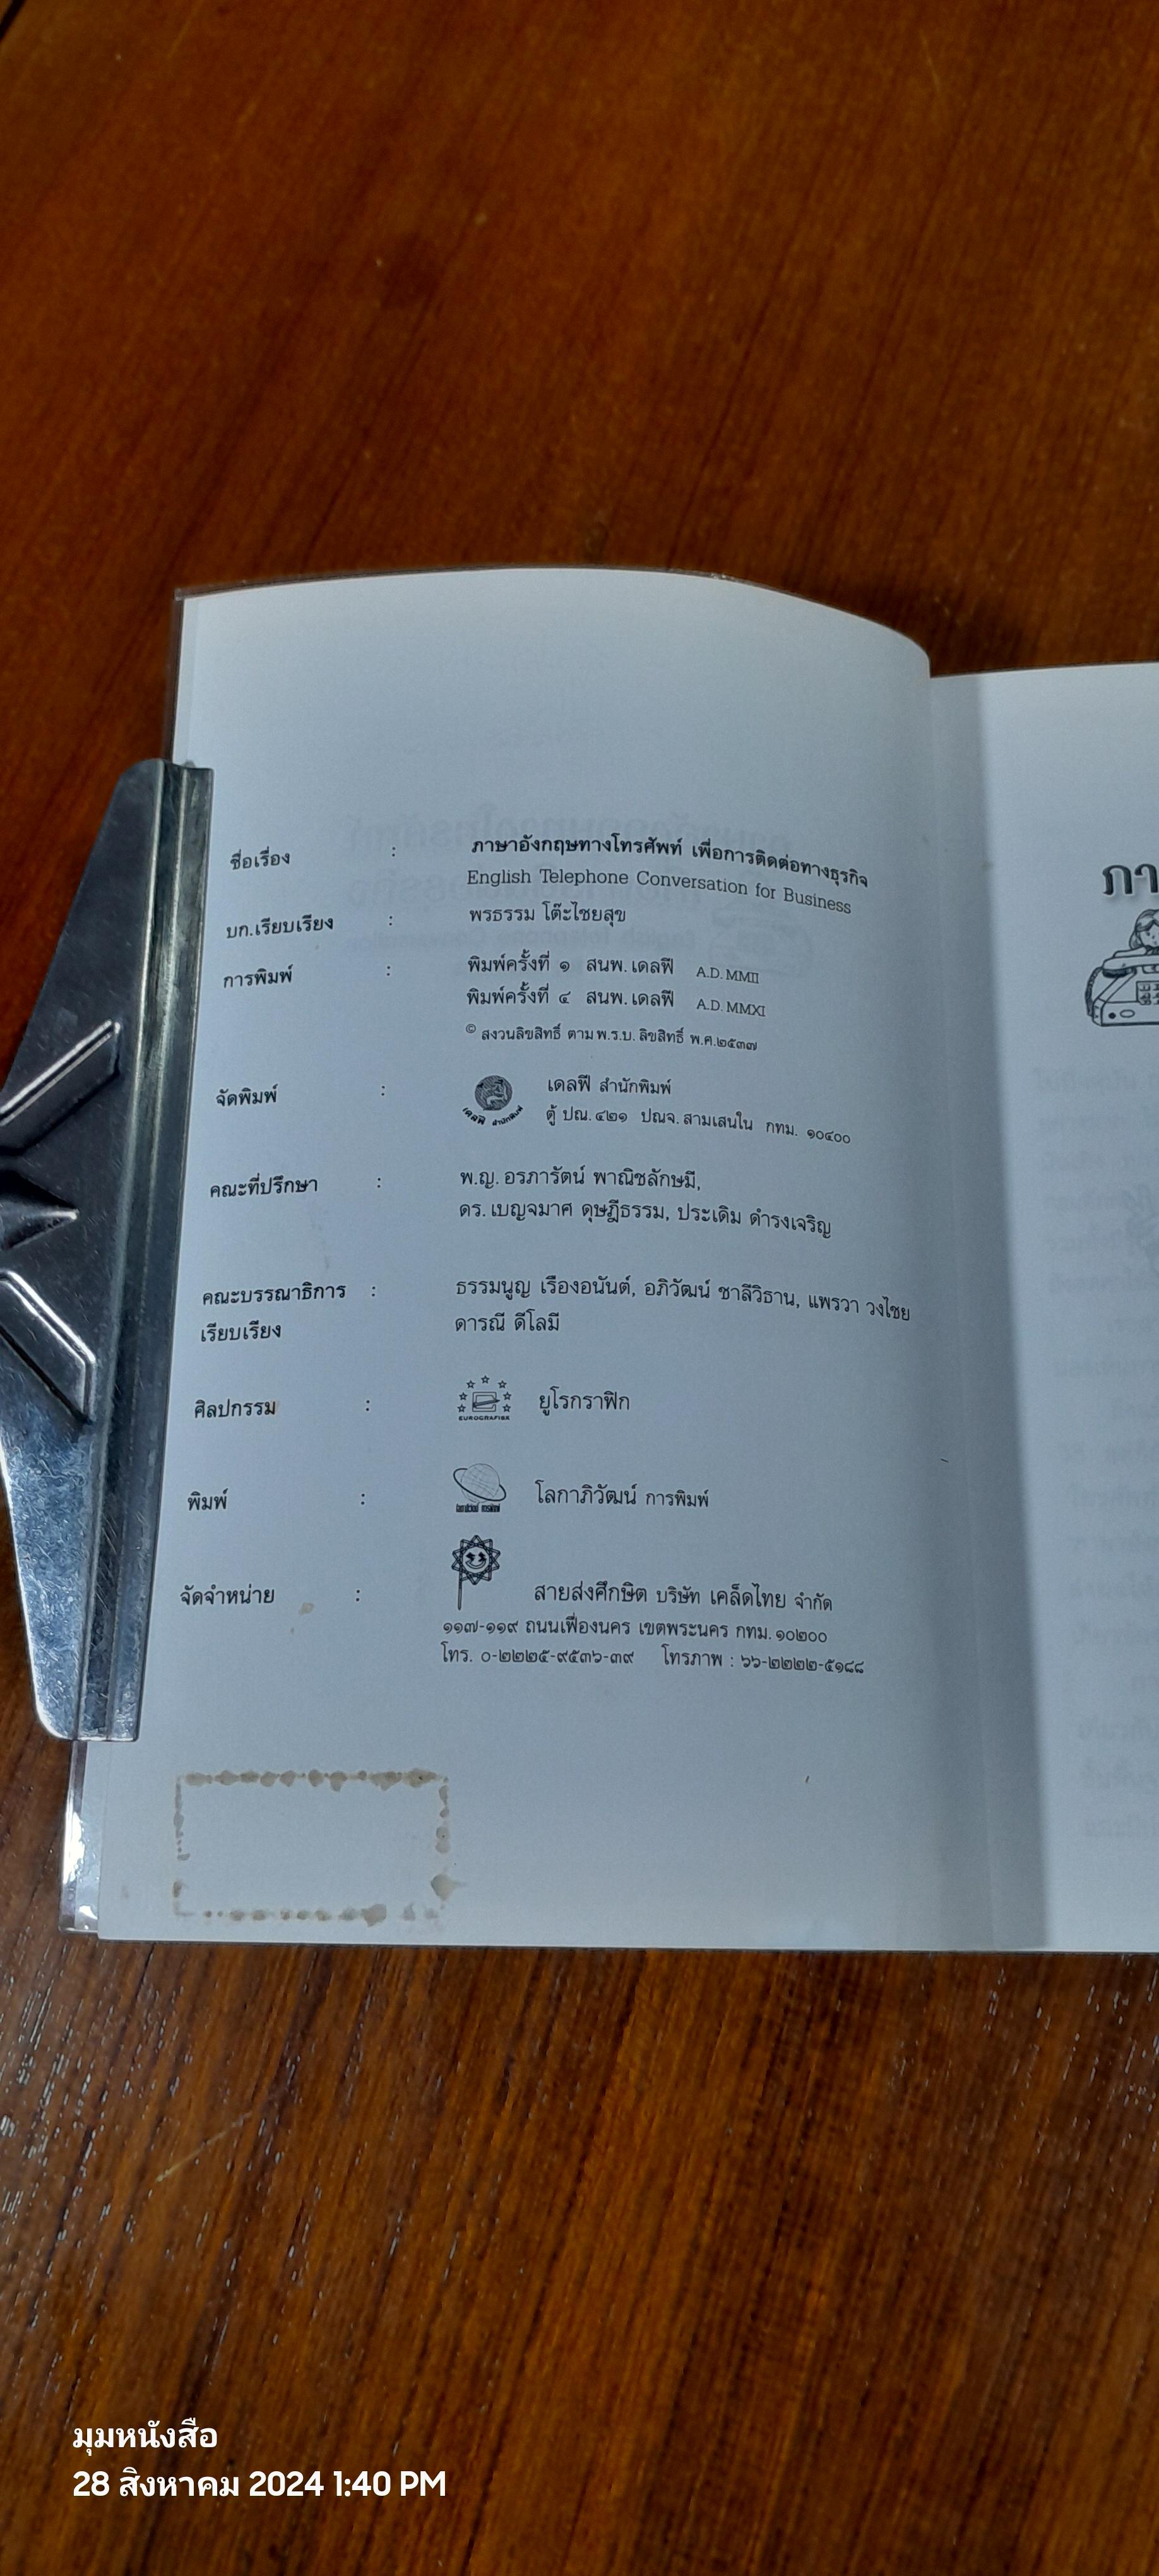 ชื่อเรื่อง : ภาษาอังกฤษทางโทรศัพท์ เพื่อการติดต่อทางธุรกิจ
English Telephone Conversation for Business
บก.เรียบเรียง : พรธรรม โต๊ะไชยสุข
การพิมพ์ : พิมพ์ครั้งที่ ๑ สนพ.เดลฟี A.D. MMII
พิมพ์ครั้งที่ ๔ สนพ.เดลฟี A.D. MMXI
© สงวนลิขสิทธิ์ ตาม พ.ร.บ. ลิขสิทธิ์ พ.ศ.๒๕๓๗
จัดพิมพ์ : เดลฟี สำนักพิมพ์
เดลฟี สำนักพิมพ์
ตู้ ปณ. ๔๒๑ ปณจ. สามเสนใน กทม. ๑๐๔๐๐
คณะที่ปรึกษา : พ.ญ. อรภารัตน์ พาณิชลักษมี,
ดร. เบญจมาศ ดุษฎีธรรม, ประเดิม ดำรงเจริญ
คณะบรรณาธิการ : ธรรมนูญ เรืองอนันต์, อภิวัฒน์ ชาลีวิธาน, แพรวา วงไชย
เรียบเรียง ดารณี ดีโลมี
ศิลปกรรม : EUROGRAFIEK ยูโรกราฟิก
พิมพ์ : โลกาภิวัฒน์ การพิมพ์
จัดจำหน่าย : สายส่งศึกษิต บริษัท เคล็ดไทย จำกัด
๑๑๗-๑๑๙ ถนนเฟื่องนคร เขตพระนคร กทม. ๑๐๒๐๐
โทร. ๐-๒๒๒๕-๙๕๓๖-๓๙ โทรภาพ : ๖๖-๒๒๒๒-๕๑๘๘
ภา
มุมหนังสือ
28 สิงหาคม 2024 1:40 PM